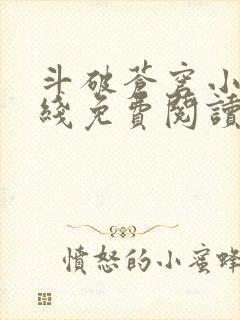 斗破蒼穹小
綫免費閱讀
憤怒的小蜜蜂